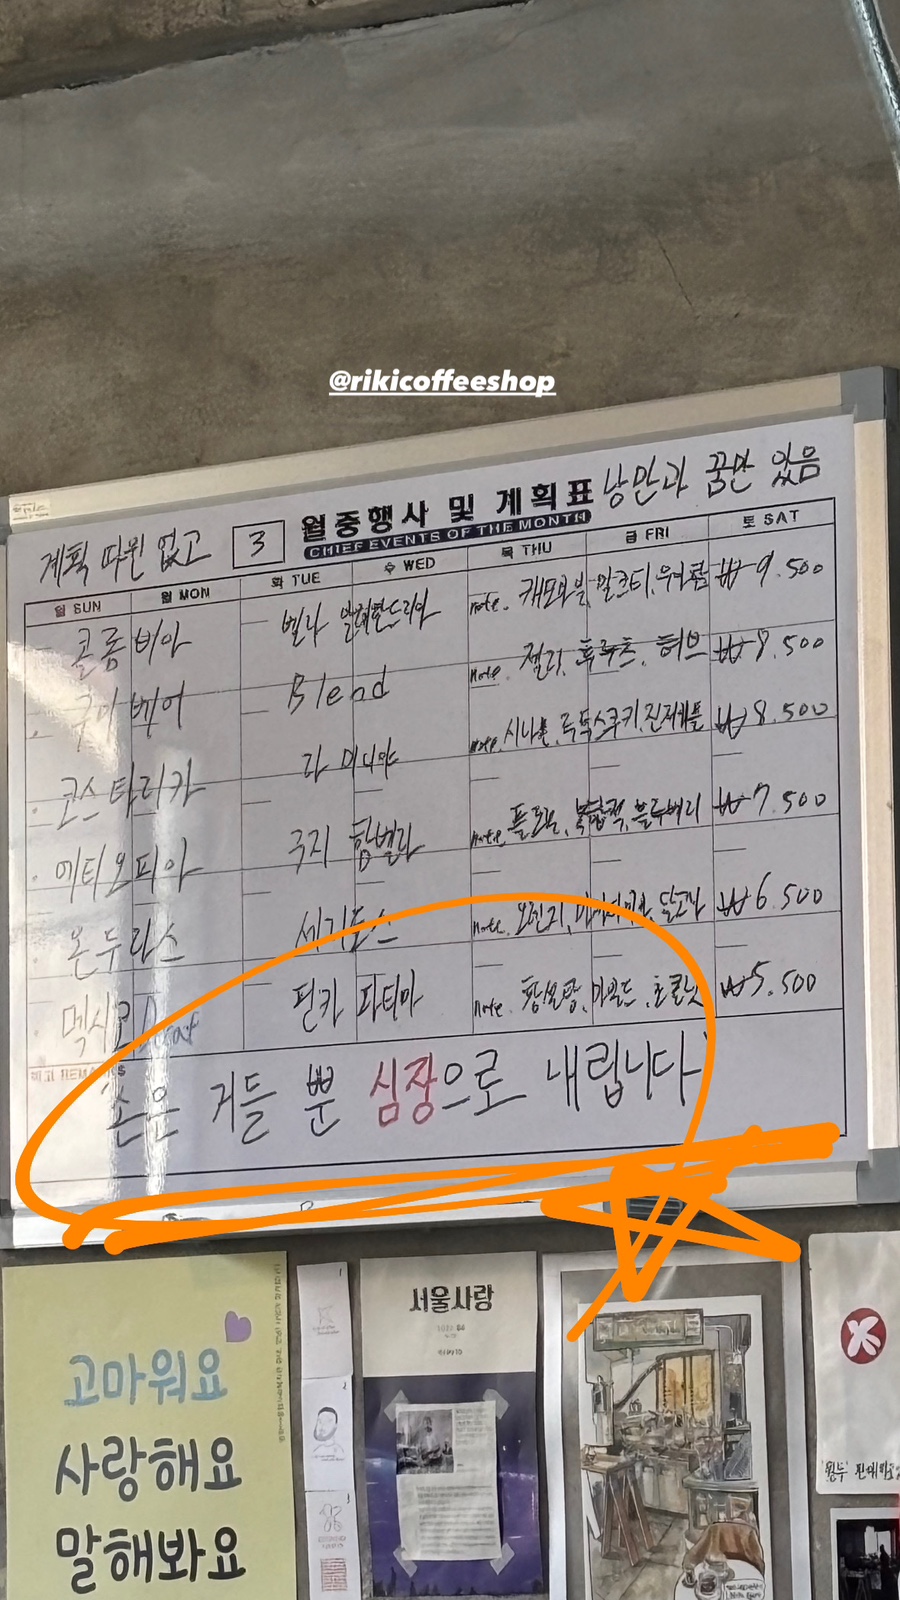 @rikicoffeeshop
계획 따윈 없고 3 월중행사 및 계획표 낭만과 꿈만 있음
CHIEF EVENTS OF THE MONTH
월 SUN 월 MON 화 TUE 수 WED 목 THU 금 FRI 토 SAT
콜롬비아 빌라 알레한드리아 note. 캐모마일, 밀크티, ₩9.500
베어 Blend note. 젤리, 후루츠, 허브 ₩8.500
코스타리카 라 미니타 note. 시나몬, 로투스쿠키, ₩8.500
에티오피아 구지 함벨라 note. 플로럴, 복합적, 블루베리 ₩7.500
온두라스 세기도스 note. 오렌지, ₩6.500
멕시코 Decaf 핀카 파티마 note. 마일드, 초콜릿 ₩5.500
비고 REMARKS
손은 거들 뿐 심장으로 내립니다
고마워요
사랑해요
말해봐요
1
2
3
서울사랑
원두 판매